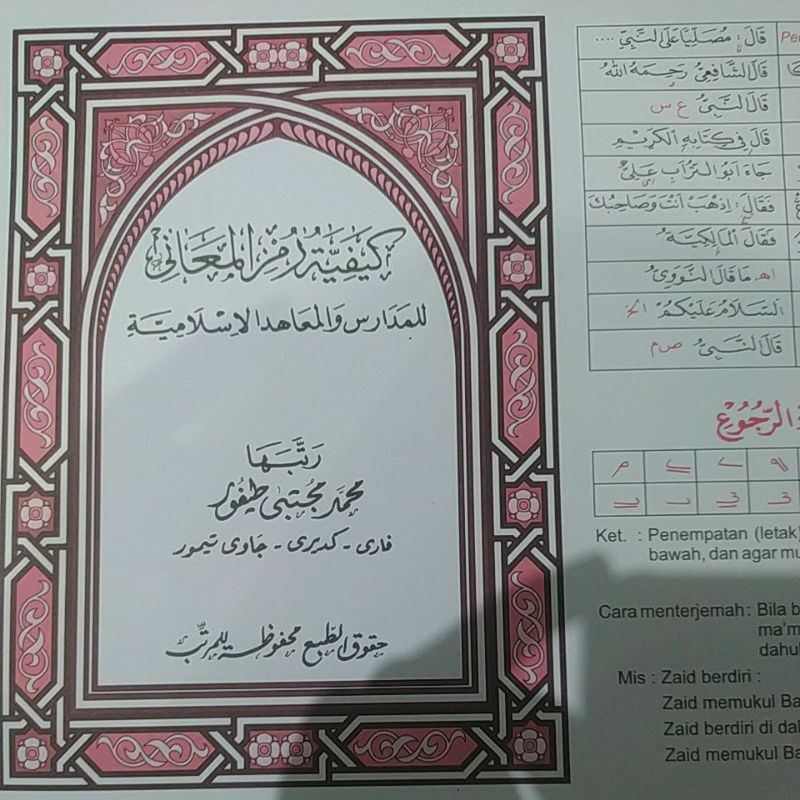 كيفية رمز المعانى
للمدارس والمعاهد الإسلامية
رَتَّبَهَا
محمد مجتبى طيفور
فارى - كديرى - جاوى تيمور
حقوق الطبع محفوظة للمرتب
قَالَ: مُصَلِّيًا عَلَى النَّبِيِّ ....
قَالَ الشَّافِعِيُّ رَحِمَهُ اللهُ
قَالَ النَّبِيُّ ع س
قَالَ فِي كِتَابِهِ الْكَرِيْمِ
جَاءَ اَبُو التُّرَابِ عَلِيٌّ
فَقَالَ: اِذْهَبْ اَنْتَ وَصَاحِبُكَ
فَقَالَ الْمَالِكِيَّةُ
اهـ مَا قَالَ النَّوَوِىُّ
اَلسَّلَامُ عَلَيْكُمْ الخ
قَالَ النَّبِيُّ ص م
الرُّجُوْعِ
Ket. : Penempatan (letak)
bawah, dan agar mu
Cara menterjemah : Bila b
ma'm
dahul
Mis : Zaid berdiri :
Zaid memukul Ba
Zaid berdiri di dal
Zaid memukul Ba